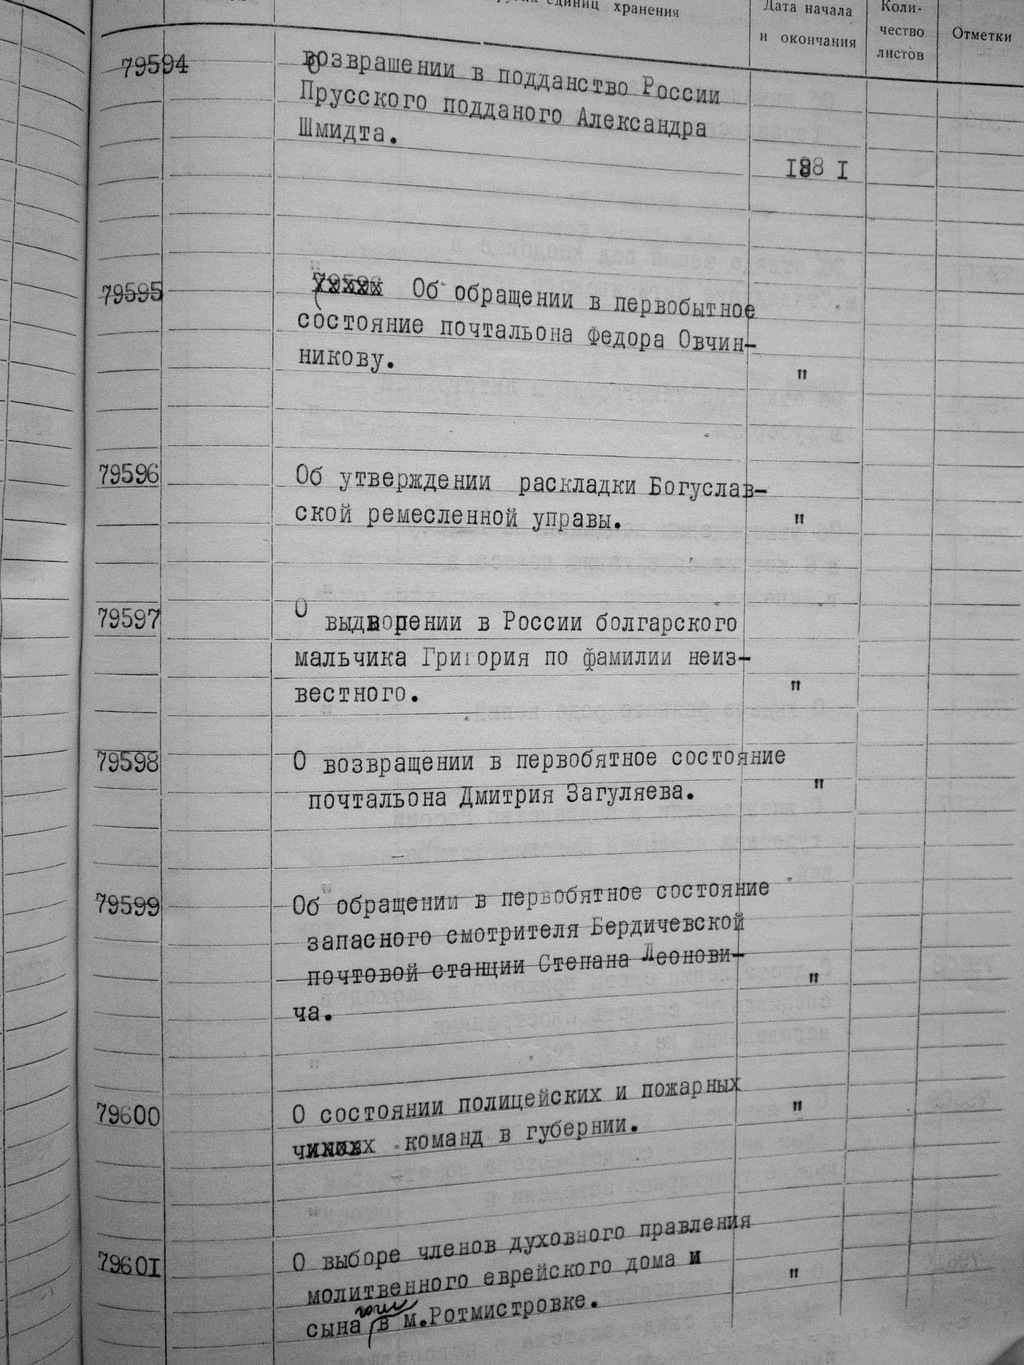 единиц хранения
Дата начала
и окончания
Коли-
чество
листов
Отметки
79594
О возвращении в подданство России
Прусского подданого Александра
Шмидта.
1881
79595
Об обращении в первобытное
состояние почтальона Федора Овчин-
никову.
"
79596
Об утверждении раскладки Богуслав-
ской ремесленной управы.
"
79597
О выдворении в России болгарского
мальчика Григория по фамилии неиз-
вестного.
"
79598
О возвращении в первобятное состояние
почтальона Дмитрия Загуляева.
"
79599
Об обращении в первобятное состояние
запасного смотрителя Бердичевской
почтовой станции Степана Леонови-
ча.
"
79600
О состоянии полицейских и пожарных
команд в губернии.
"
79601
О выборе членов духовного правления
молитвенного еврейского дома и
сына в м.Ротмистровке.
"